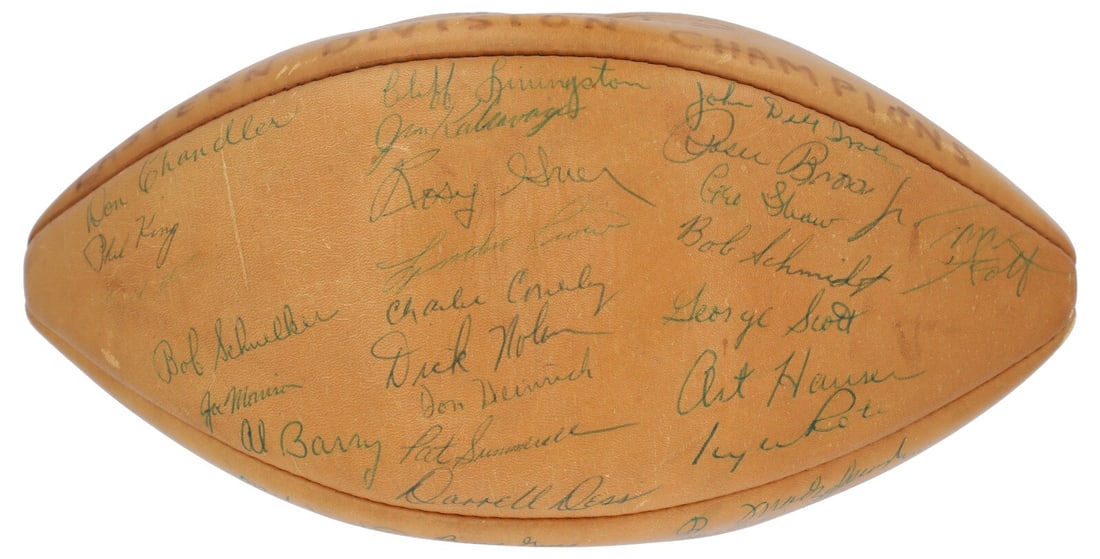 EASTERN DIVISION CHAMPIONS
Don Chandler
Phil King
Bob Schnelker
Joe Morrison
Al Barry
Cliff Livingston
Jim Katcavage
Rosy Grier
Charlie Conerly
Dick Nolan
Don Heinrich
Pat Summerall
Darrell Dess
John Dell Isola
Rosie Brown Jr
Geo Shaw
Bob Schmidt
George Scott
Art Hauser